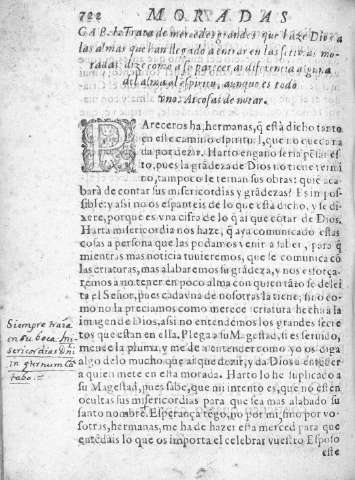 722 MORADAS
CAP. I. Trata de mercedes grandes que haze Dios a
las almas que han llegado a entrar en las setimas mo-
radas: dize como a su parecer ay diferencia alguna
del alma al espiritu, aunque es todo
uno. Ay cosas de notar.
PAreceros ha, hermanas, q̃ està dicho tanto
en este camino espiritual, que no queda na
da por dezir. Harto engaño seria pẽsar es-
to, pues la grãdeza de Dios no tiene termi
no, tampoco le ternan sus obras: quiẽ aca
barà de contar sus misericordias y grãdezas? Es impos-
sible: y assi no os espanteis de lo que està dicho, y se di-
xere, porque es vna cifra de lo q̃ ai que cõtar de Dios.
Harta misericordia nos haze, q̃ aya comunicado estas
cosas a persona que las podamos venir a saber, para q̃
mientras mas noticia tuuieremos, que se comunica cõ
las criaturas, mas alabaremos su grãdeza, y nos esforça-
remos a no tener en poco alma con quien tãto se delei
ta el Señor, pues cada vna de nosotras la tiene, sino co-
mo no la preciamos como merece criatura hecha a la
imagen de Dios, assi no entendemos los grandes secre
tos que estan en ella. Plega a su Magestad, si es seruido,
menee la pluma, y me dè a entender como yo os diga
algo de lo mucho que ay que dezir, y da Dios a entẽder
a quien mete en esta morada. Harto lo he suplicado a
su Magestad, pues sabe, que mi intento es, que no estẽ
ocultas sus misericordias para que sea mas alabado su
santo nombre. Esperança tẽgo, no por mi, sino por vo-
sotras, hermanas, me ha de hazer esta merced para que
entẽdais lo que os importa el celebrar vuestro Esposo
este
Siempre traia
en su boca Mi
sericordias Dñi
in æternum Cã
tabo.